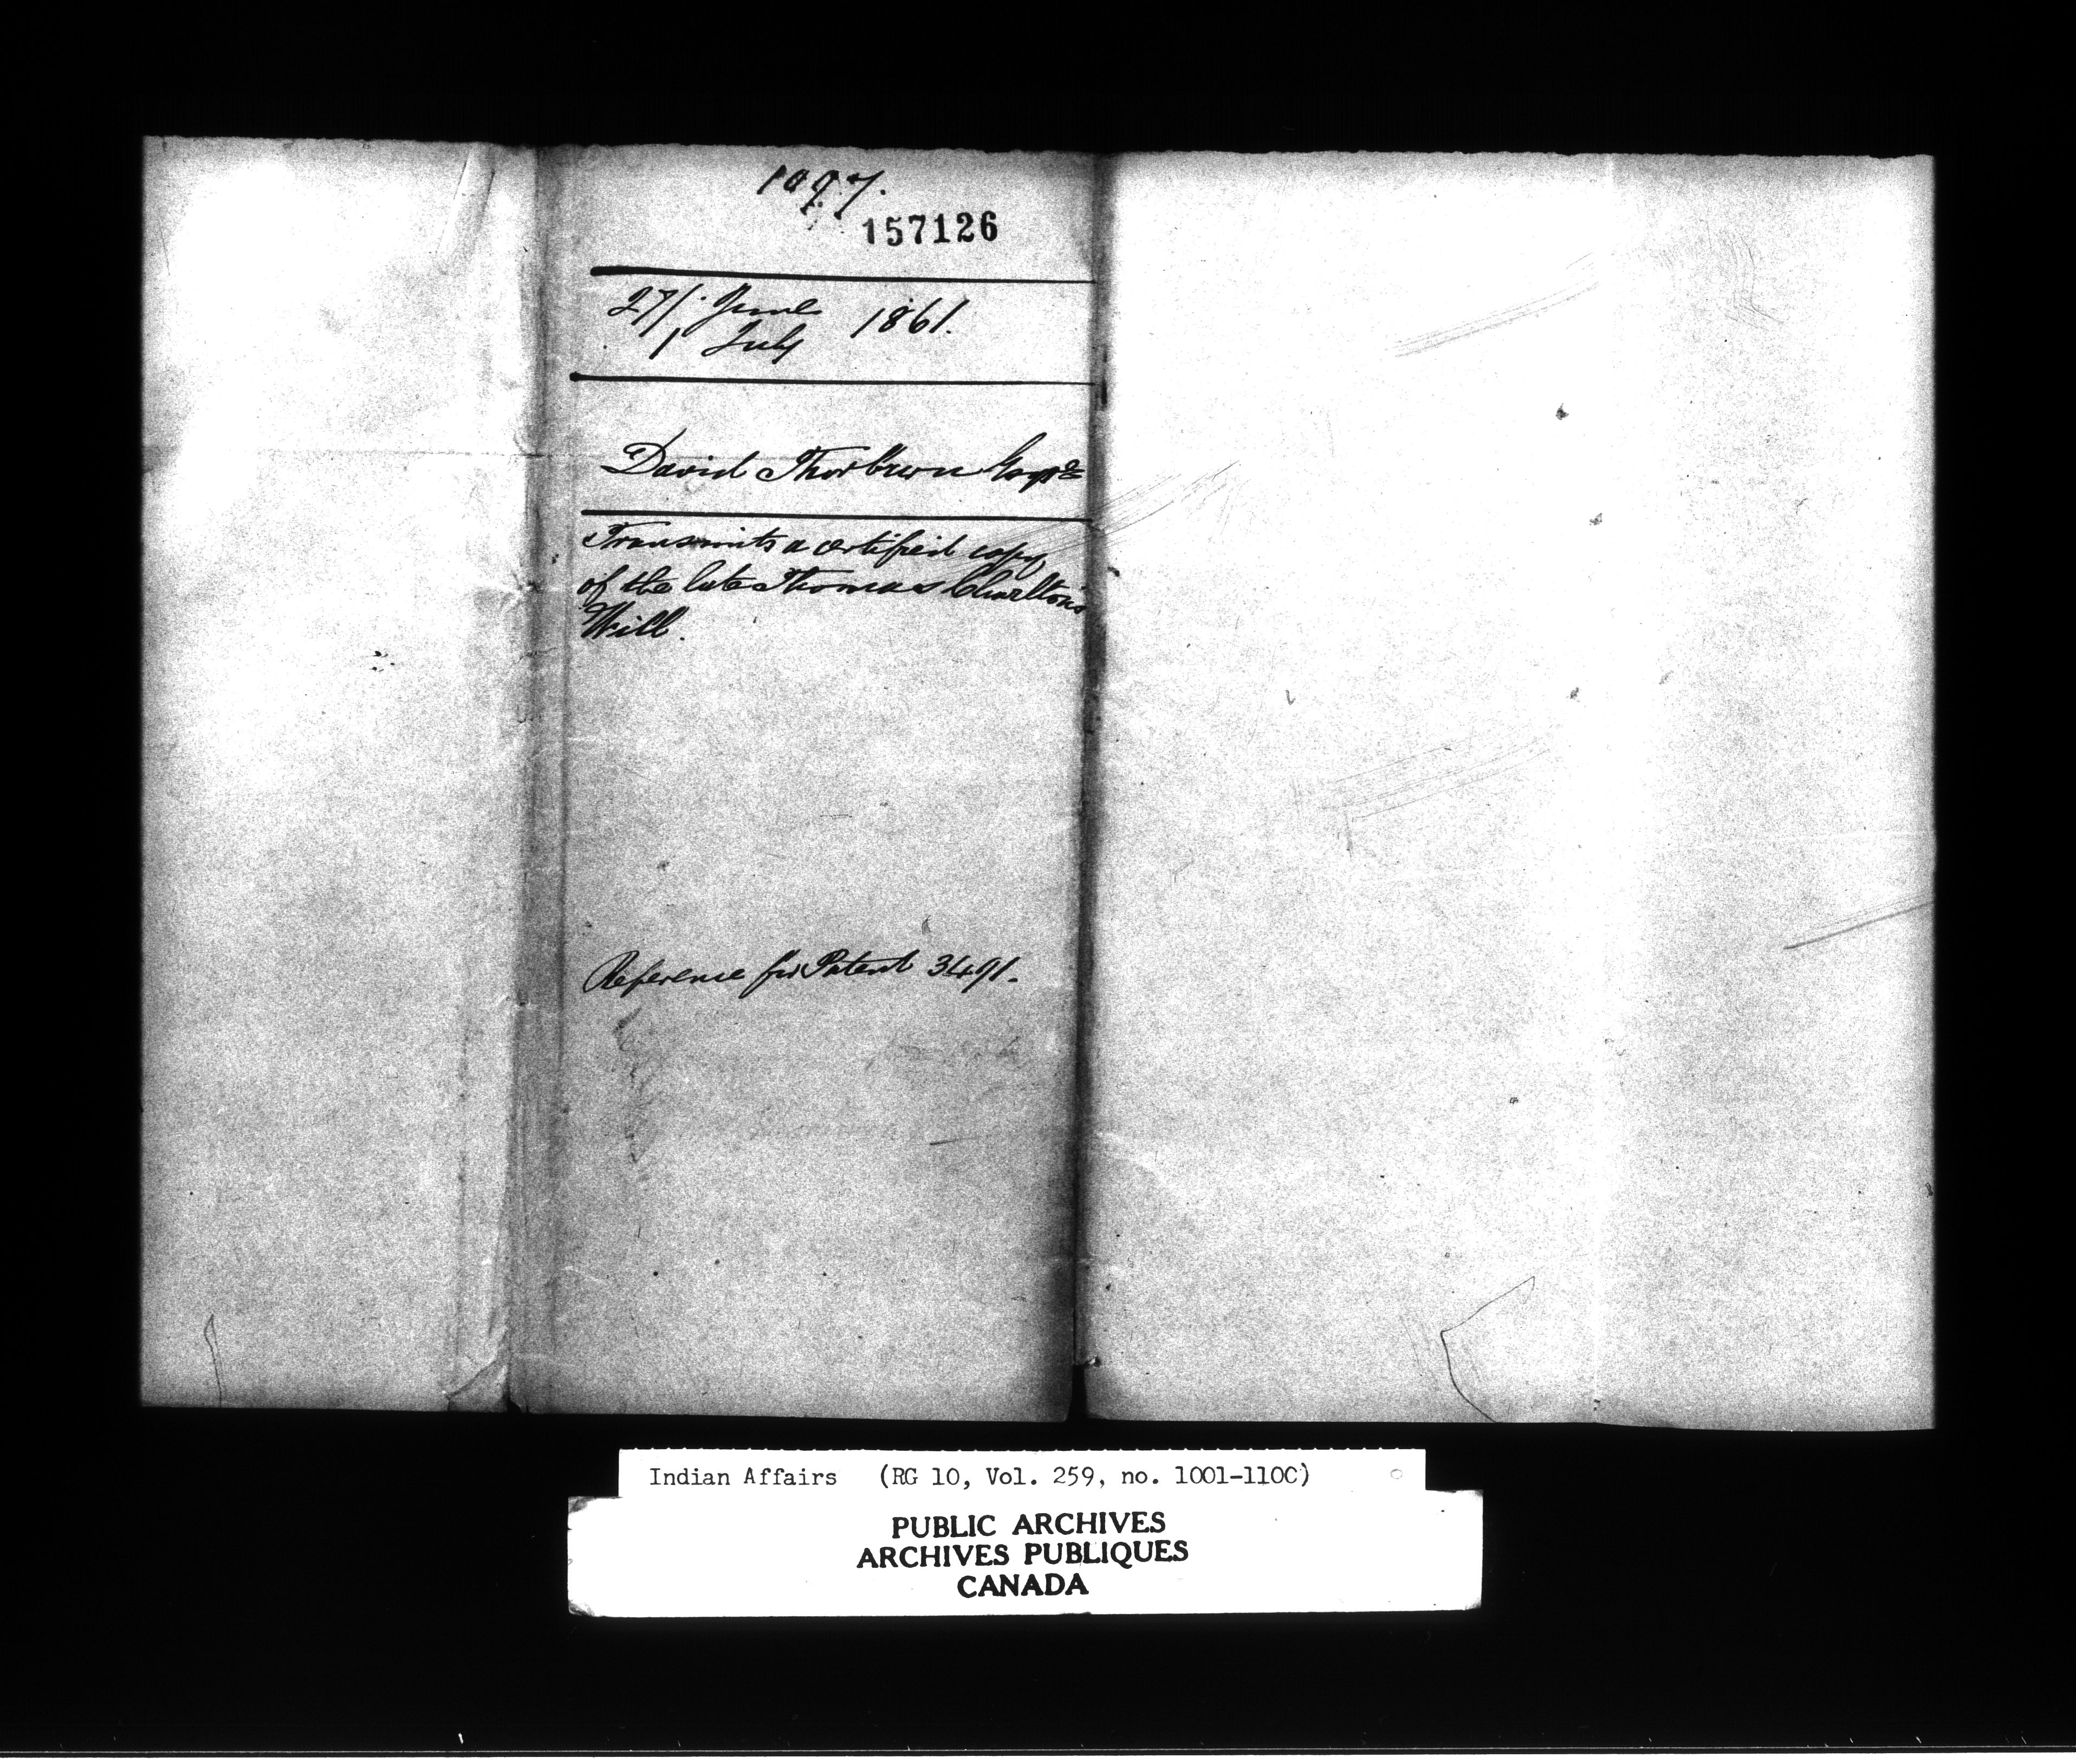 1097.
157126
27/. June 1861.
1 July
David Thorburn Esqre
Transmits a certified copy
of the late Thomas Charlton's
Will.
Reference for Patent 3491.
Indian Affairs (RG 10, Vol. 259, no. 1001-110C)
PUBLIC ARCHIVES
ARCHIVES PUBLIQUES
CANADA